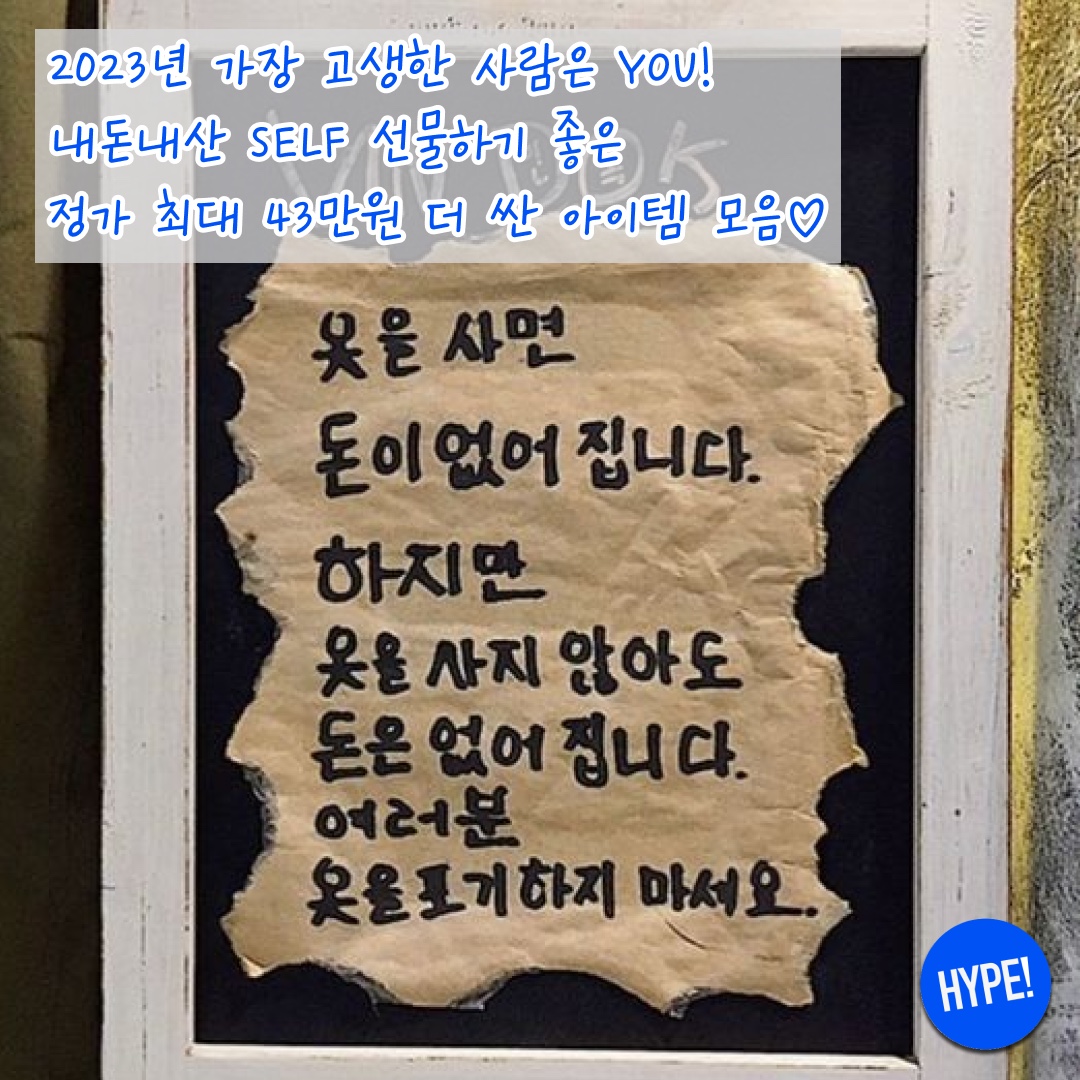 2023년 가장 고생한 사람은 YOU!
내돈내산 SELF 선물하기 좋은
정가 최대 43만원 더 싼 아이템 모음♡
옷을 사면
돈이 없어 집니다.
하지만
옷을 사지 않아도
돈은 없어 집니다.
여러분
옷을 포기하지 마세요.
HYPE!